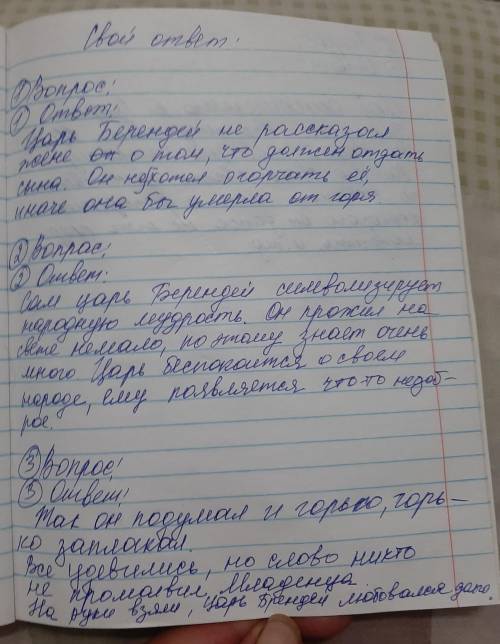 Свой ответ:
① Вопрос!
① Ответ:
Царь Берендей не рассказал
жене он о том, что должен отдать
сына. Он не хотел огорчать её,
иначе она бы умерла от горя.
② Вопрос!
② Ответ:
Сам царь Берендей символизирует
народную мудрость. Он прожил на
свете немало, поэтому знает очень
много Царь беспокоится о своем
народе, ему появляется что-то недоб-
рое.
③ Вопрос!
③ Ответ!
Так он подумал и горько, горь-
ко заплакал.
Все удевились, но слово никто
не промолвил. Младенца
На руки взяли, царь Брендей любовался